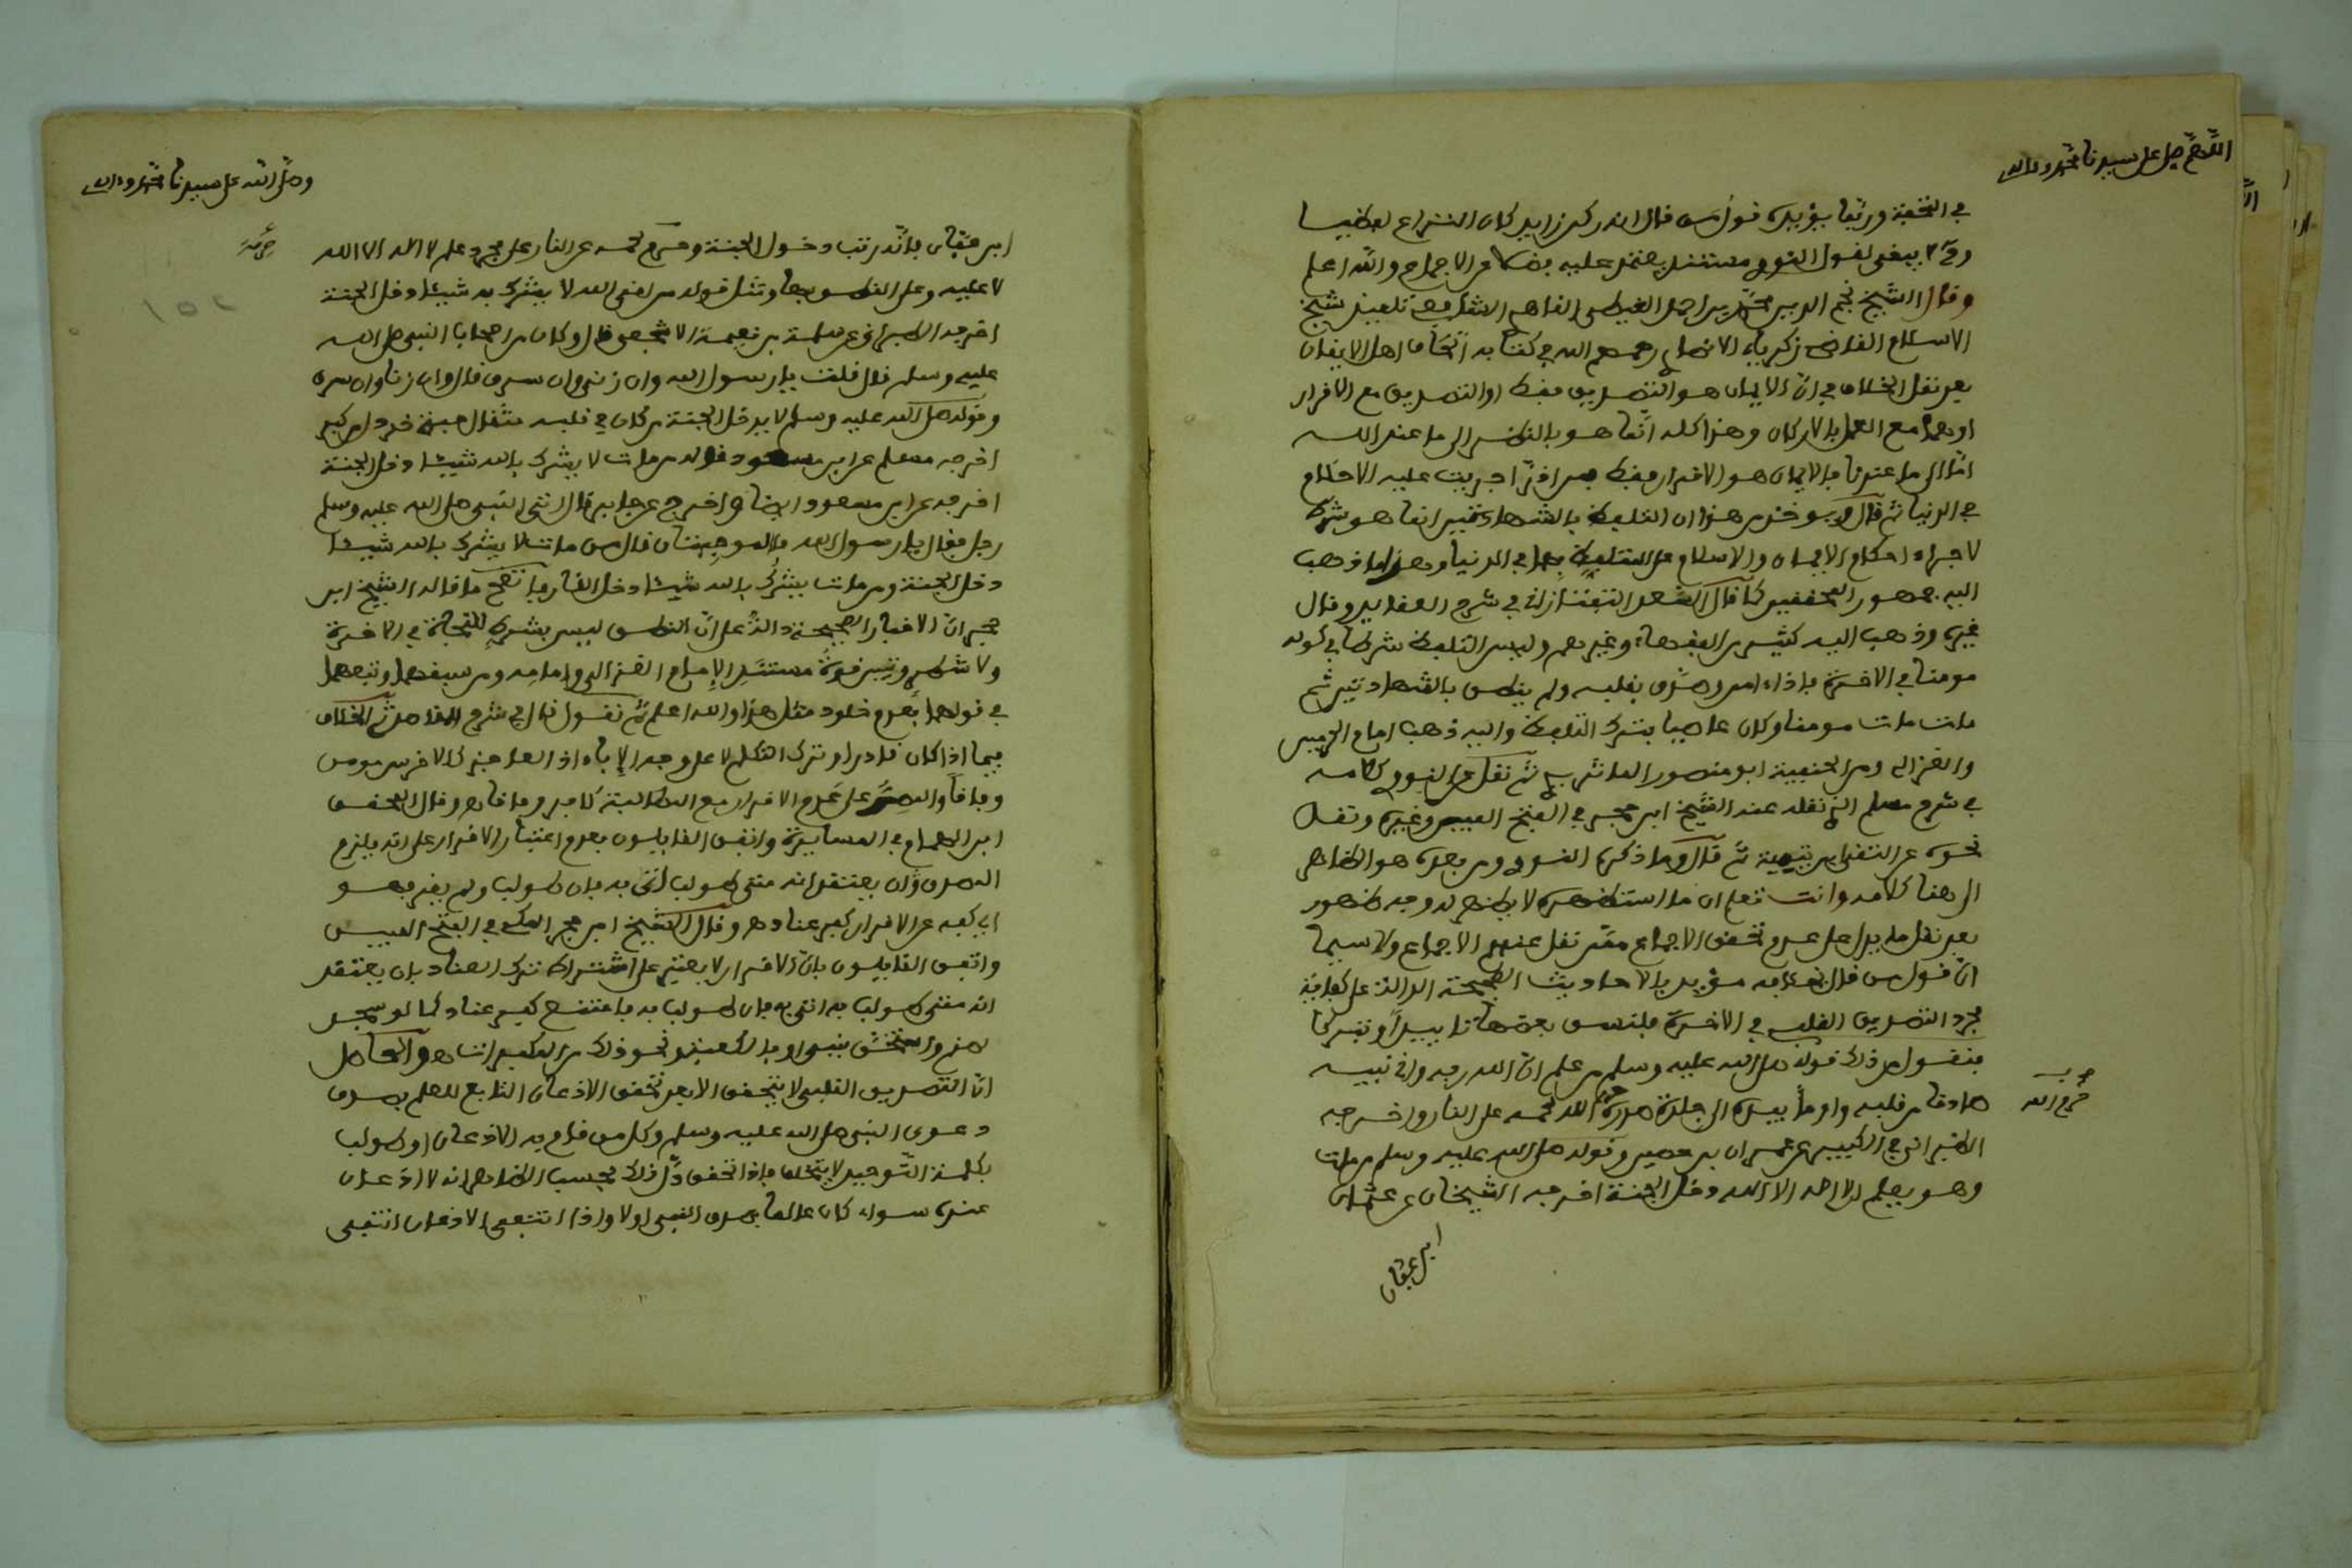 اللهم صل على سيدنا محمد وءاله
في التحفة وربما يؤيده قول من قال انه ركن زايد كان النزاع لفظيا
وح لا يبقى لقول النووي مستند يعتمد عليه بضلا عن الاجماع والله اعلم
وقال الشيخ نجم الدين محمد بن احمد الغيطي الشافعي تلميذ شيخ
الاسلام القاضي زكرياء الانصاري رحمهم الله في كتابه اهل الايمان
بعد نقل الخلاف في ان الايمان هو التصديق فقط او التصديق مع الافرار
او هما مع العمل بالاركان وهذا كله انما هو بالنظر الى ما عند الله
اما الى ما عندنا فالايمان هو الافرار فقط فمن افر اجريت عليه الاحكام
في الدنيا ثم قال ويوخذ من هذا ان التلفظ بالشهادتين انما هو شرط
لاجراء احكام الايمان والاسلام على المتلفظ بهما في الدنيا وهذا ما ذهب
اليه جمهور المحققين كما قال السعد التفتازاني في شرح العقايد وقال
غيره وذهب اليه كثير من الفقهاء وغيرهم وليس التلفظ شرطا في كونه
مومنا في الاخرة فاذا امن وصدق بقلبه ولم ينطق بالشهادتين ثم
مات مات مومنا وكان عاصيا بترك التلفظ واليه ذهب امام الحرمين
والغزالي ومن الحنفية ابو منصور الماتريدي ثم نقل عن النووي كلامه
في شرح مسلم الذي نقله عنه الشيخ ابن حجر في الفتح المبين وغيره ونقل
نحوه عن التقي ابن تيمية ثم قال وما ذكره النووي ومن بعده هو الظاهر
الى هنا كلامه وانت تعلم ان ما استظهره لا يظهر له وجه ظهور
بعد نقل ما يدل على عدم تحقق الاجماع ممن نقل عنهم الاجماع ولا سيما
ان قول من قال بخلافه مؤيد بالاحاديث الصحيحة الدالة على كفاية
مجرد التصديق القلبي في الاخرة فلنسق بعضها تاييدا وتبركا
فنقول من ذلك قوله صلى الله عليه وسلم من علم ان الله ربه واني نبيه
صادقا من قلبه واومأ بيده الى جلدة صدره حرم الله لحمه على النار اخرجه
حرم الله
الطبراني في الكبير عن عمران بن حصين وقوله صلى الله عليه وسلم من مات
وهو يعلم ان لا اله الا الله دخل الجنة اخرجه الشيخان عن عثمان
ابن عفان
وصلى الله على سيدنا محمد وءاله
ابن عفان فانه رتب دخول الجنة وحرم لحمه عن النار على مجرد علم لا اله الا الله
لا عليه وعلى النطق بها ومثله قوله من لقي الله لا يشرك به شيئا دخل الجنة
اخرجه الطبراني عن سلمة بن نعيمة الاشجعي قال وكان من اصحاب النبي صلى الله
عليه وسلم قال قلت يا رسول الله وان زنى وان سرق قال وان زنا وان سرق
وقوله صلى الله عليه وسلم لا يدخل الجنة من كان في قلبه مثقال حبة خردل من كبر
اخرجه مسلم عن ابن مسعود وقوله من مات لا يشرك بالله شيئا دخل الجنة
اخرجه عن ابن مسعود ايضا واخرج عن جابر قال اتى النبي صلى الله عليه وسلم
رجل فقال يا رسول الله ما الموجبتان قال من مات لا يشرك بالله شيئا
دخل الجنة ومن مات يشرك بالله شيئا دخل النار فاتضح ما قاله الشيخ ابن
حجر ان الاخبار الصحيحة دالة على ان النطق ليس بشرط للنجاة في الاخرة
ولا شطر وتبين قوة مستند الامام الغزالي وامامه ومن سبقهما وتبعهما
في قولهما بعدم خلود مثل هذا والله اعلم ثم نقول قال في شرح المقاصد ثم الخلاف
فيما اذا كان قادرا وترك التكلم لا على وجه الاباء اذ العاجز كالاخرس مومن
وفاقا والمصر على عدم الافرار مع المطالبة كافر وفاقا وقال المحقق
ابن الهمام في المسايرة واتفق القايلون بعدم اعتبار الافرار على انه يلزم
المصدق ان يعتقد انه متى طولب اتى به فان طولب ولم يفر فهو
اي كفه عن الافرار كفر عناد وقال الشيخ ابن حجر المكي في الفتح المبين
واتفق القايلون بان الافرار لا يعتبر على اشتراط ترك العناد بان يعتقد
انه متى طولب به اتى به فان طولب به فامتنع كفر عناد كما لو سجد
لصنم او استخف بنبي او بالكعبة ونحو ذلك من المكفرات والحاصل
ان التصديق القلبي لا يتحقق الا بعد تحقق الاذعان التابع للعلم بصدق
دعوى النبي صلى الله عليه وسلم وكل من قام به الاذعان او طولب
بكلمة التوحيد لا يتخلف فاذا تخلف دل ذلك بحسب الظاهر انه لا اذعان
عنده سواء كان عالما بصدق النبي او لا واذا انتفى الاذعان انتفى